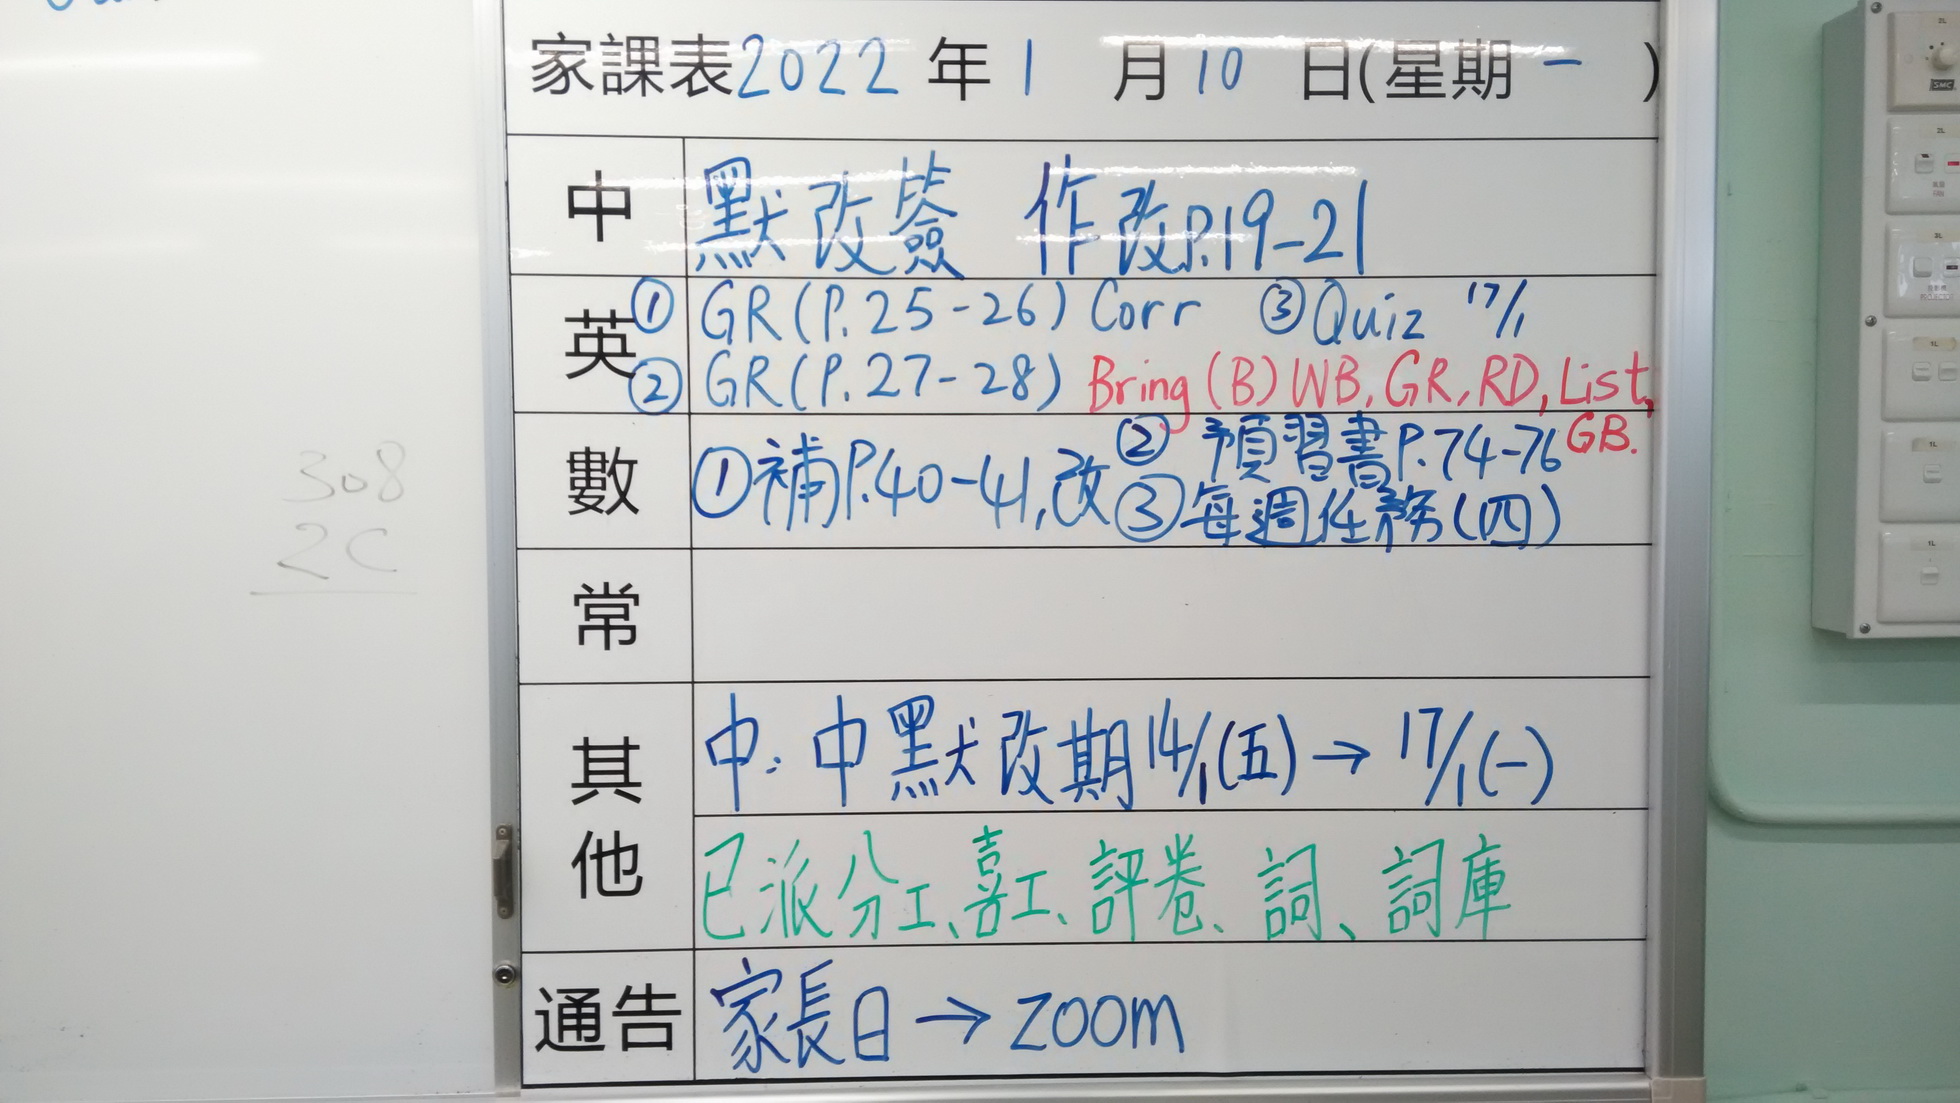 家課表2022年1月10日(星期一)
中 默改簽 作改P.19-21
英 ① GR(P.25-26) Corr ③Quiz 17/1
② GR(P.27-28) Bring (B) WB, GR, RD, List,
GB.
數 ①補P.40-41,改 ② 預習書P.74-76
③每週任務(四)
308
2C
常
其他 中: 中默改期14/1(五)→17/1(一)
已派分工、喜工、評卷、詞、詞庫
通告 家長日→ZOOM
SMC